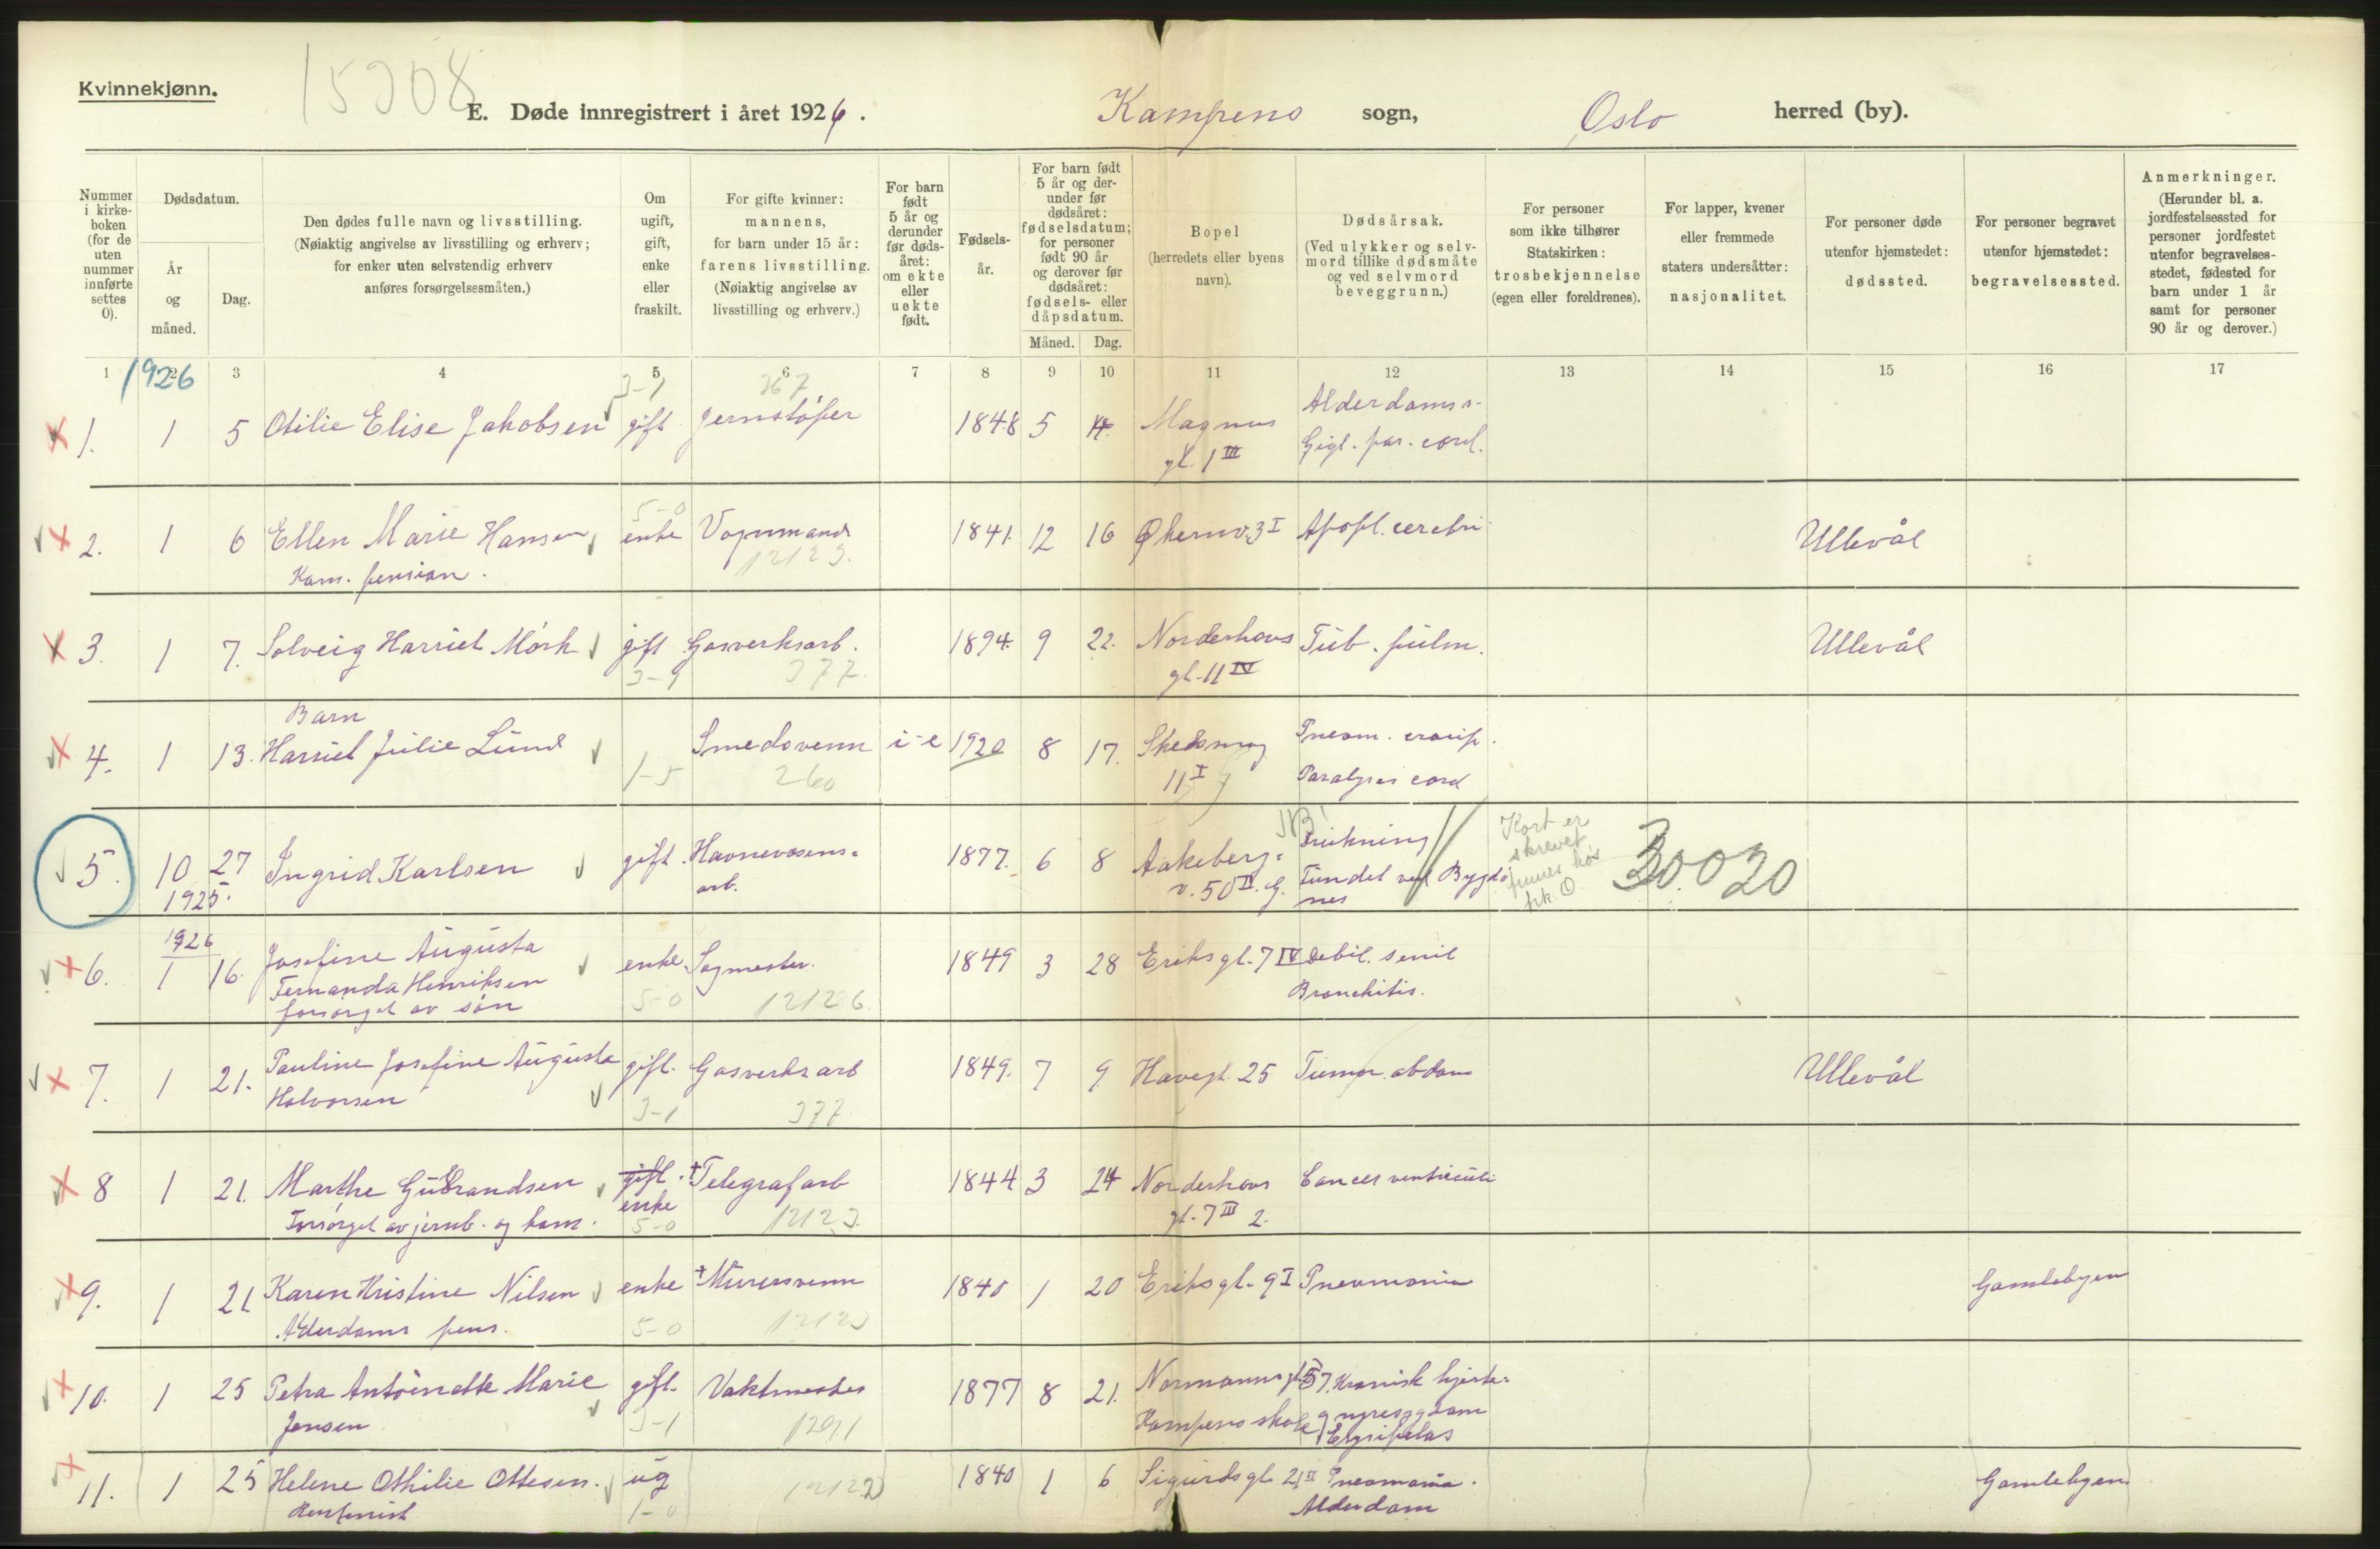 Kvinnekjønn.
E. Døde innregistrert i året 1926.
Kampens sogn,
Oslo herred (by).
Nummer i kirkeboken (for de uten nummer innførte settes 0).
Dødsdatum.
År og måned.
Dag.
Den dødes fulle navn og livsstilling.
(Nøiaktig angivelse av livsstilling og erhverv;
for enker uten selvstendig erhverv
anføres forsørgelsesmåten.)
Om ugift, gift, enke eller fraskilt.
For gifte kvinner:
mannens,
for barn under 15 år:
farens livsstilling.
(Nøiaktig angivelse av
livsstilling og erhverv.)
For barn født 5 år og derunder før dødsåret: om ekte eller uekte født.
Fødselsår.
For barn født 5 år og derunder før dødsåret: fødselsdatum; for personer født 90 år og derover før dødsåret: fødsels- eller dåpsdatum.
Måned. Dag.
Bopel
(herredets eller byens
navn).
Dødsårsak.
(Ved ulykker og selvmord tillike dødsmåte og ved selvmord beveggrunn.)
For personer
som ikke tilhører
Statskirken:
trosbekjennelse
(egen eller foreldrenes).
For lapper, kvener
eller fremmede
staters undersåtter:
nasjonalitet.
For personer døde
utenfor hjemstedet:
dødssted.
For personer begravet
utenfor hjemstedet:
begravelsessted.
Anmerkninger.
(Herunder bl. a.
jordfestelsessted for
personer jordfestet
utenfor begravelsesstedet, fødested for
barn under 1 år
samt for personer
90 år og derover.)
1 2 3 4 5 6 7 8 9 10 11 12 13 14 15 16 17
1926
3-1 367
1. 1 5 Otilie Elise Jakobsen gift Jernstøper 1848 5 14. Magnus gt. 1 III Alderdomss- Gigt. par. cord.
2. 1 6 Ellen Marie Hansen enke Vognmand 1841. 12 16 Økernv. 3 I Apopl. cerebri Ullevål
Kom. pension. 5-0 12123.
3. 1 7. Solveig Harriet Mörk gift Gasverksarb. 1894. 9 22. Norderhovs gt. 11 IV Tub. pulm. Ullevål
3-1 377.
Barn
4. 1 13. Harriet Julie Lund Smedsvenn i-e 1920 8 17. Skedsmog 11 I Pneum. croup. Paralysis cord
1-5 260
5. 10 27 Ingrid Karlsen gift. Havnevesens- arb. 1877. 6 8 Aakeberg- v. 50 II. G. Drukning Fundet ved Bygdönes
1925.
Kort er skrevet
30.020
1926
6. 1 16. Josefine Augusta Fernanda Henriksen enke. Sagmester. 1849 3 28 Eriksgt. 7 IV Debil. senil Bronchitis.
forsørget av søn 5-0 12126.
7. 1 21. Pauline Josefine Augusta Halvorsen gift. Gasverksarb 1849. 7 9 Havegt. 25 Tumor. abdom Ullevål
3-1 377
8 1 21. Marthe Gudbrandsen gift. enke †Telegrafarb 1844 3 24 Norderhovs gt. 7 III 2. Cancer ventriculi
Forsørget av jernb. og kom. 5-0 12123.
9. 1 21 Karen Kristine Nilsen enke †Murersvenn 1840 1 20 Eriksgt. 9 I Pneumonia Gamlebyen
Alderdoms pens. 5-0 12123
10. 1 25 Petra Antoinette Marie Jensen gift. Vaktmester 1877 8 21. Normannsgt 57. Kampens skole Kronisk hjerte- og nyresygdom Erysipelas
3-1 1291
11. 1 25 Helene Othilie Ottesen. ug 1840 1 6 Sigurdsgt. 21 II Pneumonia. Alderdom Gamlebyen
1-0 12122